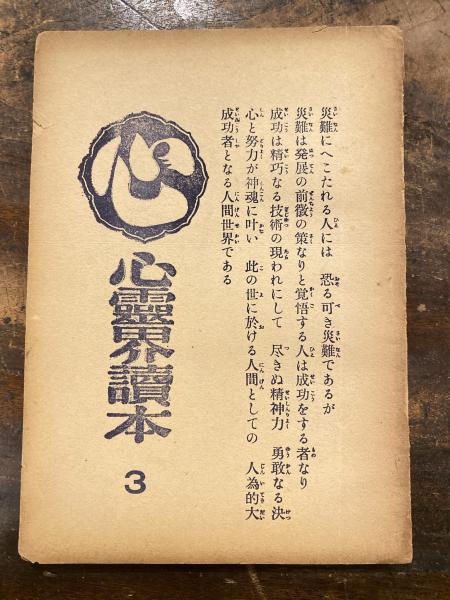 災難にへこたれる人には 恐る可き災難であるが
災難は発展の前徴の策なりと覚悟する人は成功をする者なり
成功は精巧なる技術の現われにして 尽きぬ精神力 勇敢なる決
心と努力が神魂に叶い 此の世に於ける人間としての 人為的大
成功者となる人間世界である
心
心靈界讀本
3